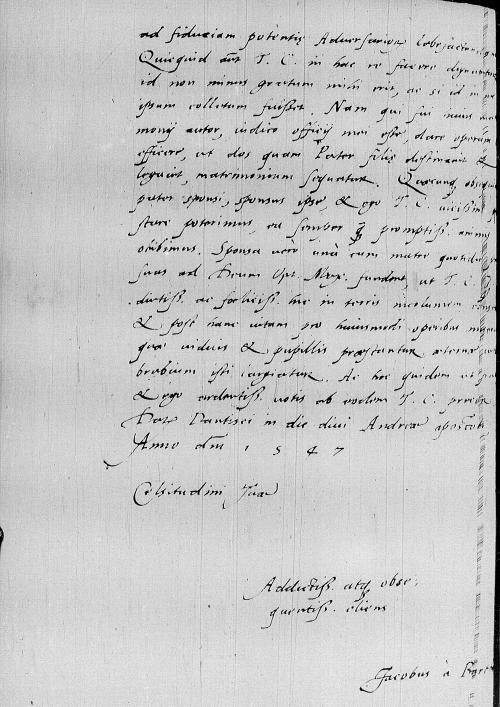 ad fiduciam potentię Adversarior
Quicquid aut T. C. in hac re facere
id non minus gratum mihi erit, ac si id in me
ipsum collatum fuisset. Nam qui fui
monij autor, iudico officij mei esse, dare operam
efficere, ut dos quam Pater filię destinavit &
legavit, matrimonium sequatur.
pater sponsi, sponsus ipse, & ego T. C. vicissim
stare poterimus, ea semper promptiss. animis
exhibimus. Sponsa vero una cum matre
suas ad Deum Opt. Max. fundent, ut T. C.
dutiss. ac foeliciss. hic in terris incolumem
& post hanc vitam pro huiusmodi operibus
quae viduis & pupillis praestantur
brabium isti largiatur. Ac hoc quidem
& ego ardentiss. votis ab eodem T. C.
Dat Dantisci in die divi Andreae apostoli
Anno dni 1 5 4 7
Celsitudini Tuae
Addictiss. atq obse:
quentiss. cliens
Jacobus à